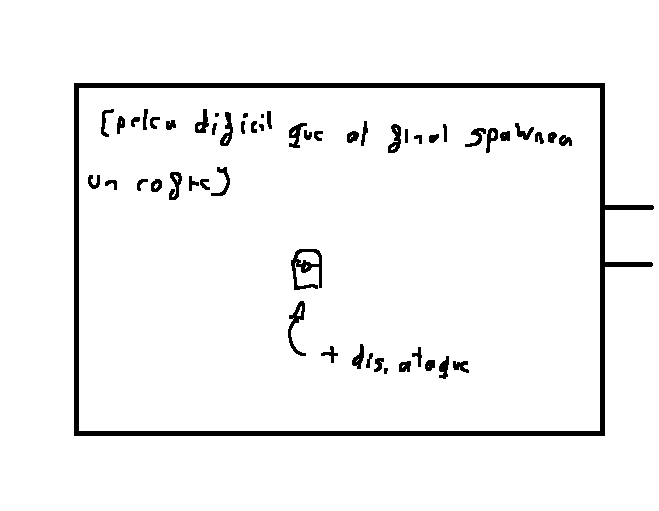 [pelea dificil que al final spawnea
un cofre]
+ dis. ataque